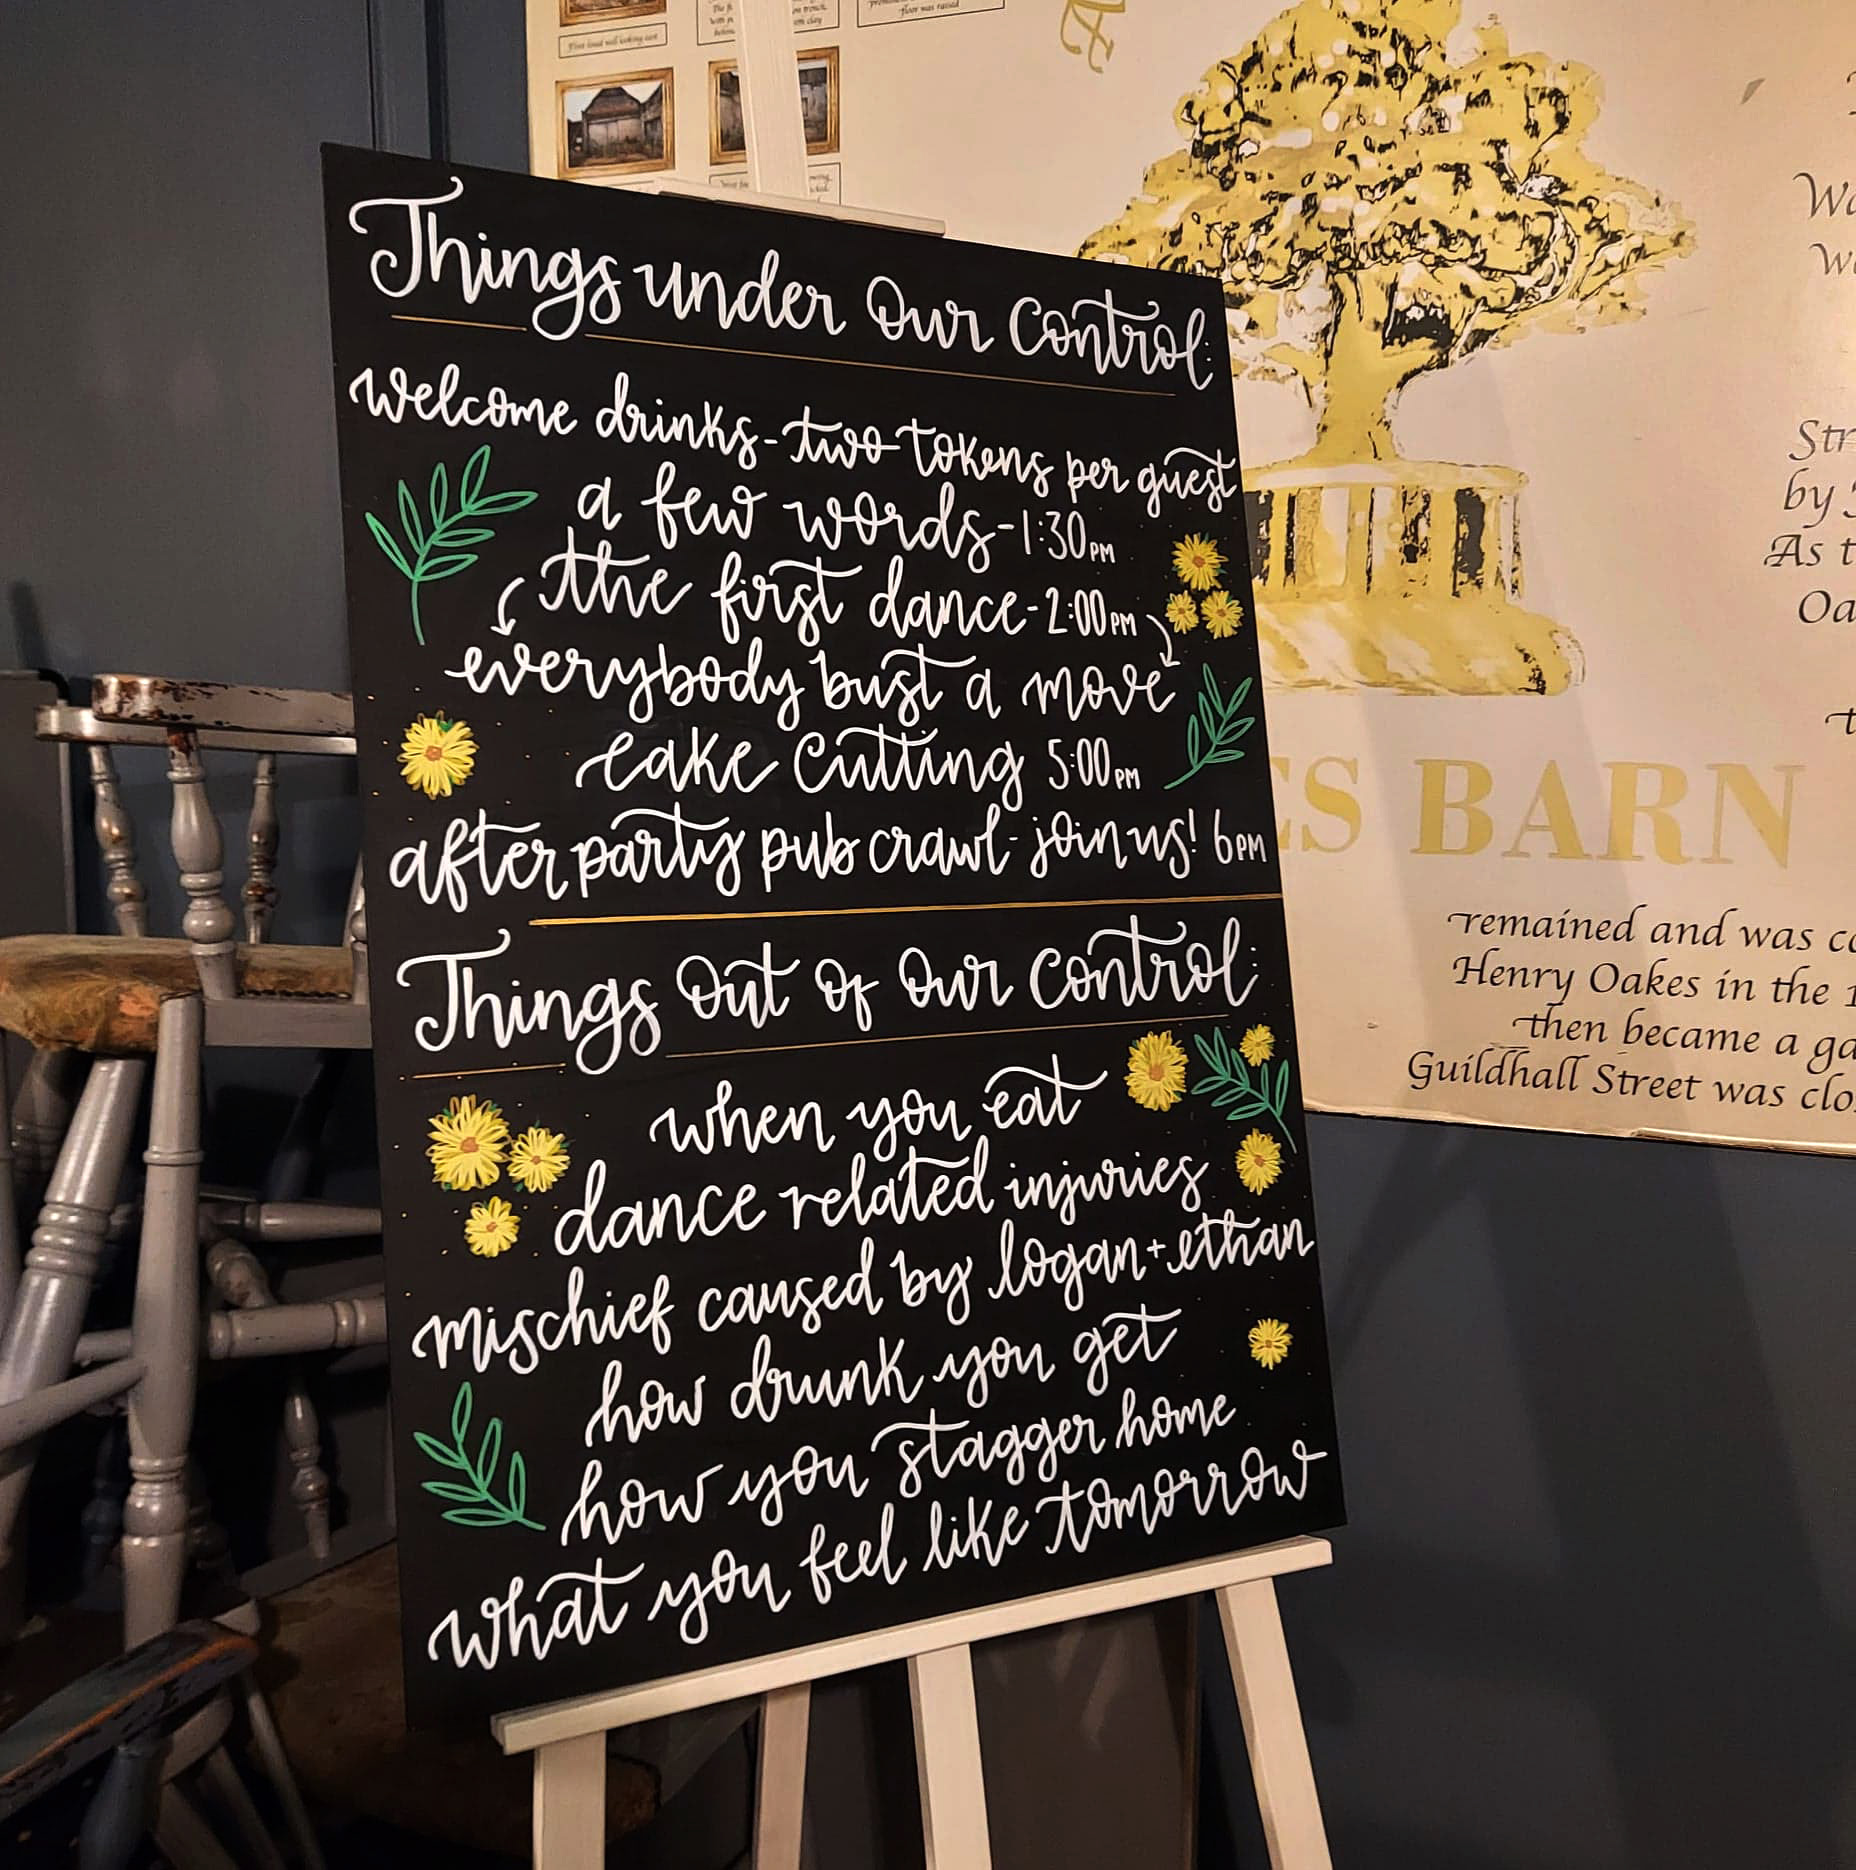 Things under Our Control:
Welcome drinks - two tokens per guest
a few words - 1:30PM
the first dance - 2:00PM
everybody bust a move
cake cutting 5:00PM
after party pub crawl - join us! 6PM
Things Out Of Our Control:
when you eat
dance related injuries
mischief caused by logan + ethan
how drunk you get
how you stagger home
what you feel like tomorrow
floor was raised
BARN
remained and was
Henry Oakes in the
then became a
Guildhall Street was